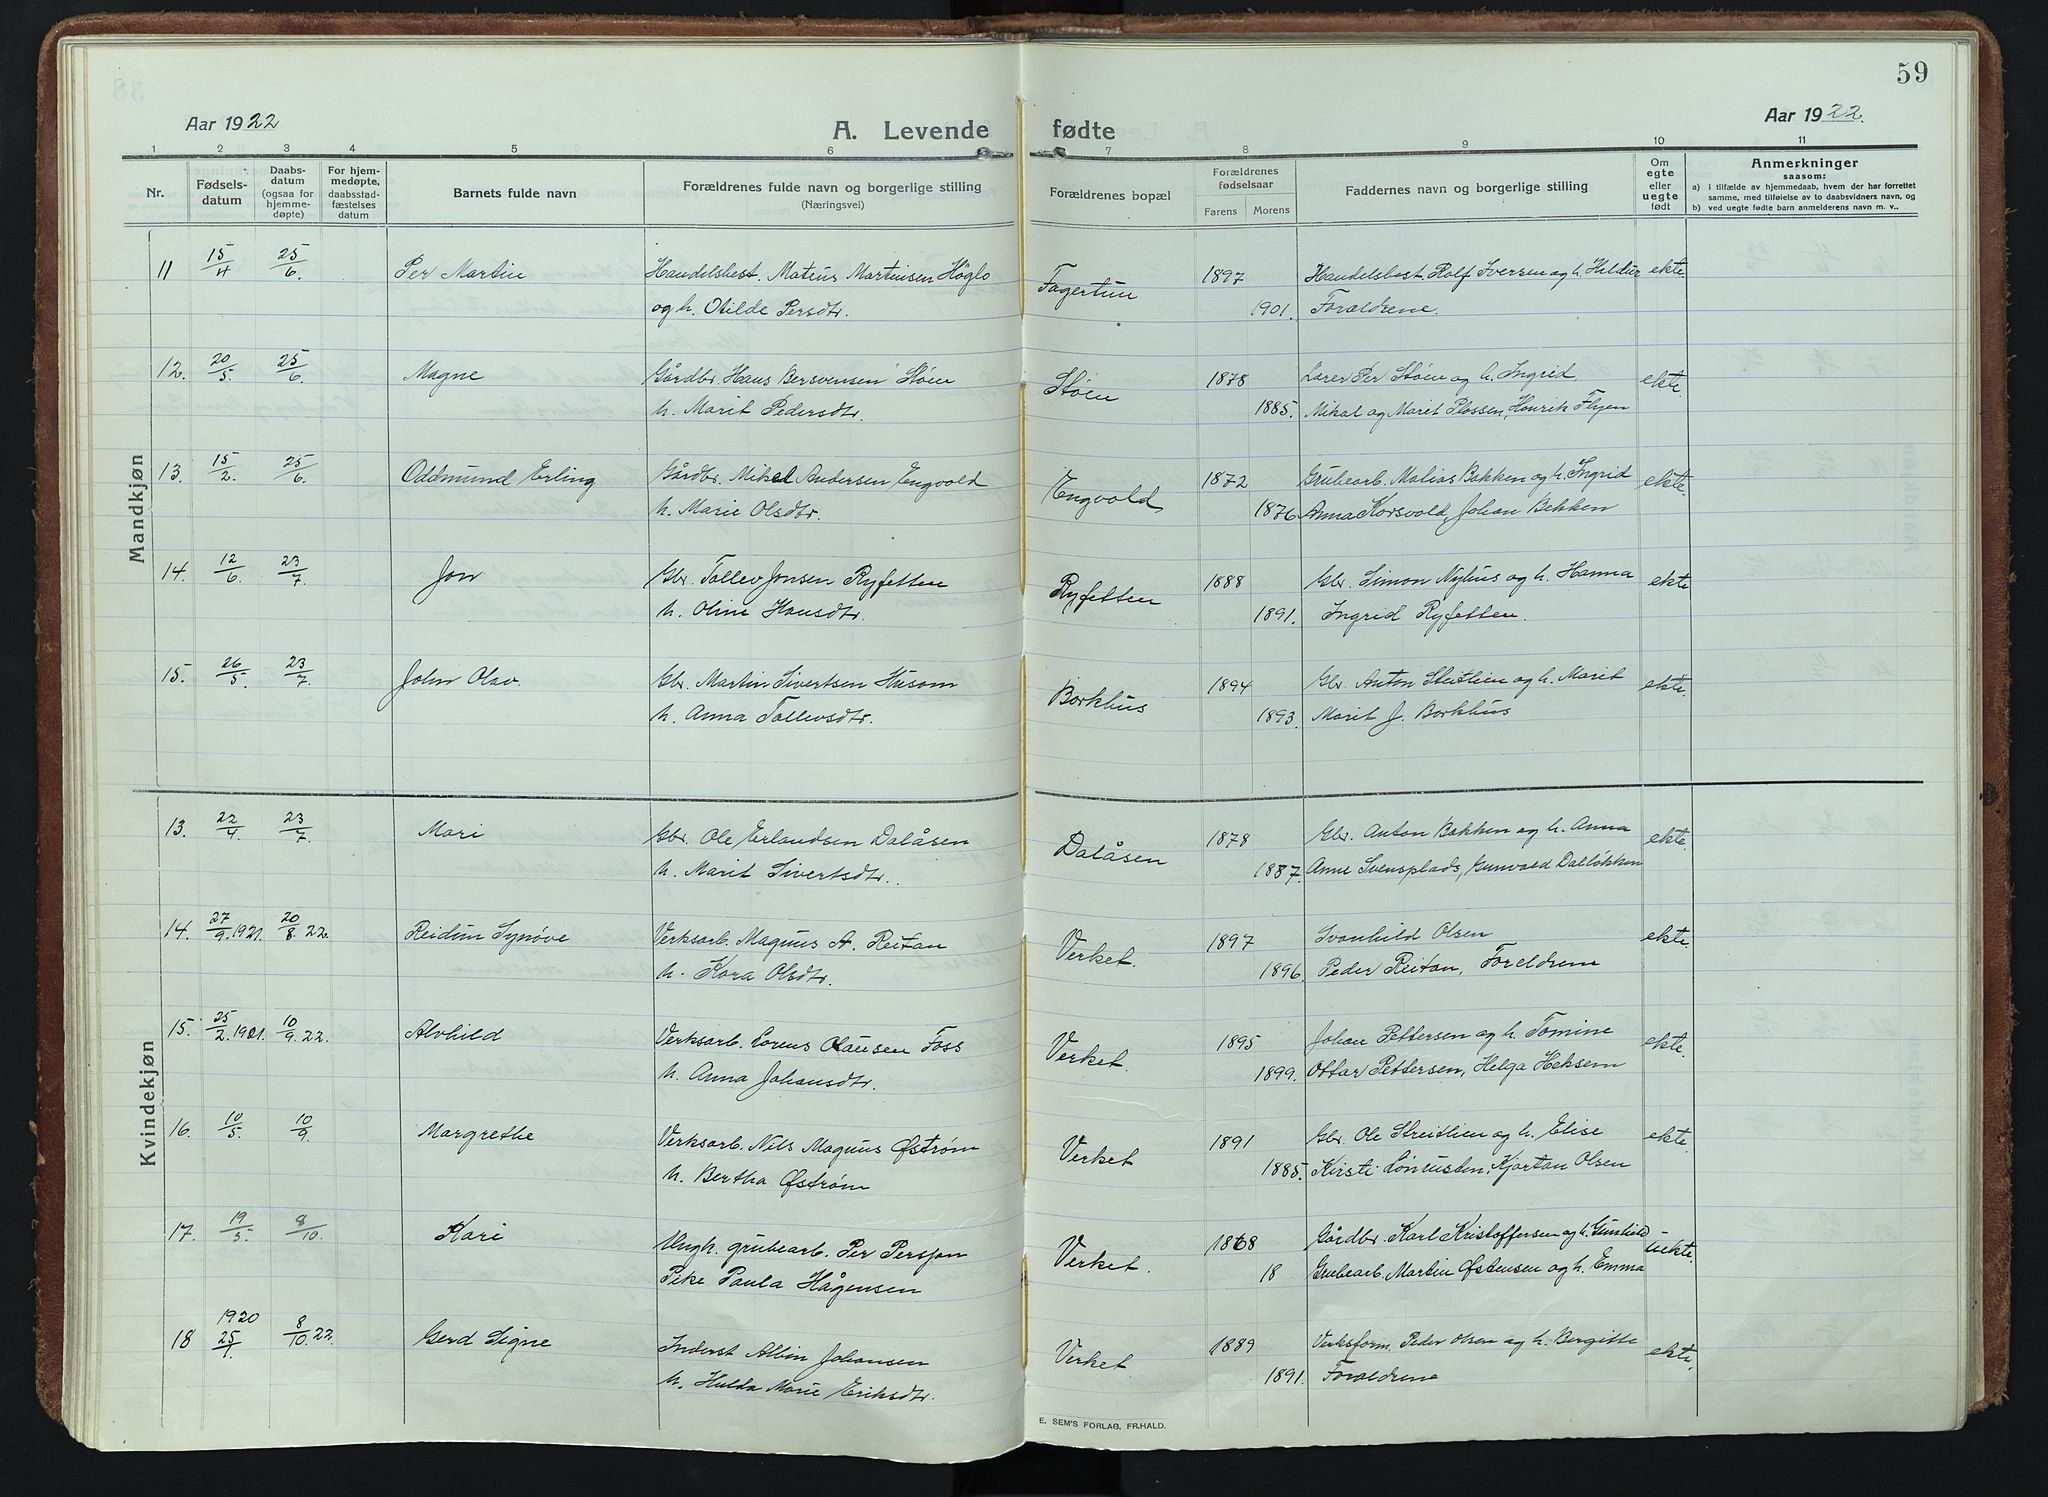 59
Aar 1922
A. Levende fødte
Aar 1922.
1 2 3 4 5 6 7 8 9 10 11
Nr.
Fødsels-
datum
Daabs-
datum
(ogsaa for
hjemme-
døpte)
For hjem-
medøpte,
daabsstad-
fæstelses
datum
Barnets fulde navn
Forældrenes fulde navn og borgerlige stilling
(Næringsvei)
Forældrenes bopæl
Forældrenes
fødselsaar
Farens Morens
Faddernes navn og borgerlige stilling
Om
egte
eller
uegte
født
Anmerkninger
saasom:
a) i tilfælde av hjemmedaab, hvem der har forrettet
samme, med tilføielse av to daabsvidners navn, og
b) ved uegte fødte barn anmelderens navn m. v..
Mandkjøn
11 15/4 25/6. Per Martin Handelsbest. Mateus Martinsen Høglo Fagertun 1897 Handelsbest. Rolf Iversen og h. Hildur ekte.
og h. Otilde Persdtr. 1901. Forældrene.
12. 20/5. 25/6. Magne Gårdbr. Hans Bersvensen Støen Støen 1878 Lærer Per Støen og h. Ingrid ekte.
h. Marit Pedersdtr. 1885. Mikal og Marit Plassen, Henrik Flyen
13. 15/2. 25/6. Oddmund Erling Gårdbr. Mikal Andersen Engvold Engvold 1872 Grubearb. Matias Bakken og h. Ingrid ekte.
h. Marie Olsdtr. 1876 Anna Korsvold, Johan Bekken
14. 12/6. 23/7. Jon Gbr. Tollev Jonsen Ryfetten Ryfetten 1888 Gbr. Simon Nyhus og h. Hanna ekte
h. Oline Hansdtr. 1891. Ingrid Ryfetten.
15. 26/5. 23/7. John Olav Gbr. Martin Sivertsen Husom Borkhus 1894 Gbr. Anton Steitlien og h. Marit ekte.
h. Anna Tollevsdtr. 1893. Marit J. Borkhus
Kvindekjøn
13. 22/4. 23/7 Mari Gbr. Ole Erlandsen Dalåsen Dalåsen 1878 Gbr. Anton Bakken og h. Anna ekte.
h. Marit Sivertsdtr. 1887. Anne Svensplads, Gunvald Dalløkken
14. 27/9. 1921. 20/8. 22. Reidun Synøve Verksarb. Magnus A. Reitan Verket. 1897 Svanhild Olsen ekte.
h. Kara Olsdtr. 1896. Peder Reitan, Foreldrene
15. 25/2. 1921. 10/9. 22. Alvhild Verksarb. Lorens Clausen Foss Verket. 1895 Johan Pettersen og h. Tomine ekte.
h. Anna Johansdtr. 1899. Ottar Pettersen, Helga Heksem
16. 10/5. 10/9. Margrethe Verksarb. Nils Magnus Østrøm Verket 1891 Gbr. Ole Streitlien og h. Elise ekte.
h. Bertha Østrøm 1885. Kirsti Lønrusten, Kjartan Olsen
17. 19/5. 8/10. Kari Ungk. grubearb. Per Persson Verket. 1868 Gårdbr. Karl Kristoffersen og h. Gunhild uekte.
Pike Paula Hågensen 18 Grubearb. Martin Østensen og h. Emma
18 1920 25/1 8/10. 22. Gerd Signe Inderst Albin Johansen Verket 1889 Verksform. Peder Olsen og h. Bergitte ekte.
h. Hulda Marie Eriksdtr. 1891. Forældrene
E. SEM'S FORLAG, FR.HALD.